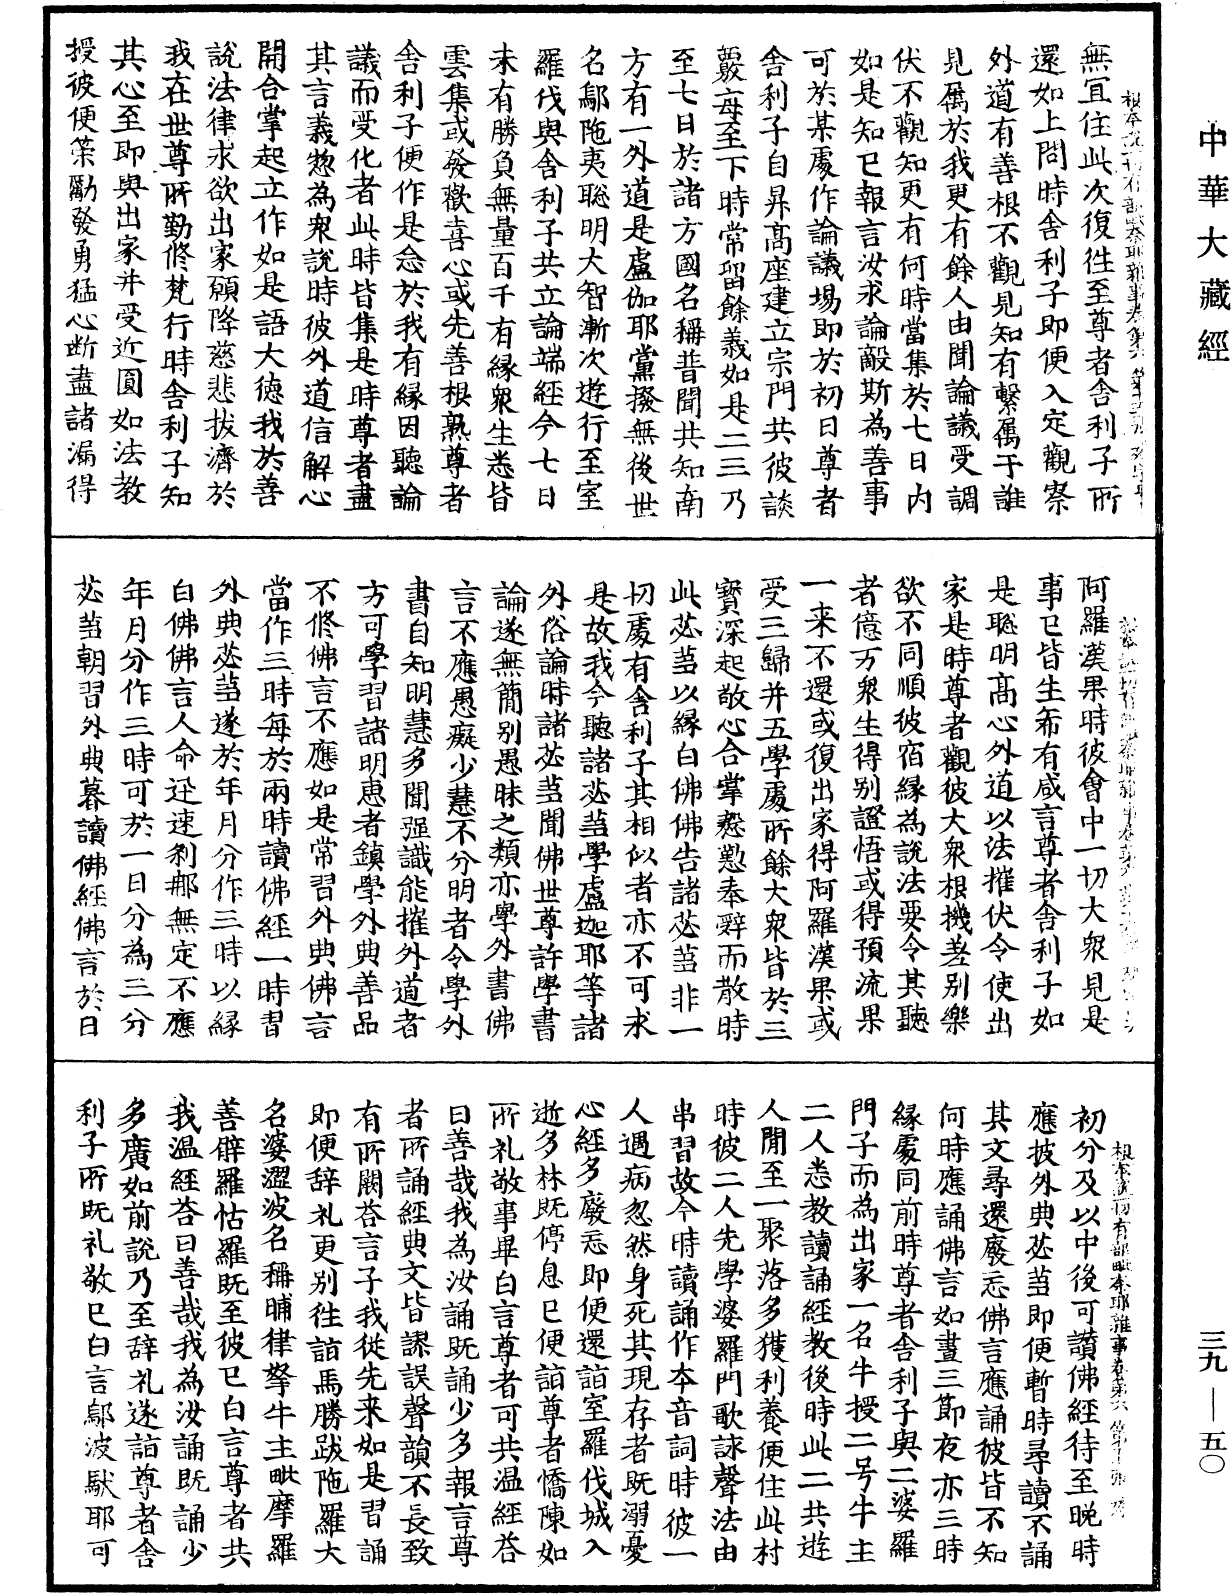 中華大藏經
無宜住此次復徃至尊者舍利子所
還如上問時舍利子即便入定觀察
外道有善根不觀見知有繫屬于誰
見屬於我更有餘人由聞論議受調
伏不觀知更有何時當集於七日内
如是知已報言汝求論敵斯為善事
可於某處作論議場即於初日尊者
舍利子自昇髙座建立宗門共彼談
覈毎至下時常留餘義如是二三乃
至七日於諸方國名稱普聞共知南
方有一外道是盧伽耶黨撥無後世
名鄔陁夷聡明大智漸次遊行至室
羅伐與舍利子共立論端經今七日
未有勝負無量百千有縁衆生悉皆
雲集或發歡喜心或先善根熟尊者
舍利子便作是念於我有縁因聽論
議而受化者此時皆集是時尊者盡
其言義惣為衆說時彼外道信解心
開合掌起立作如是語大徳我於善
說法律求欲出家願降慈悲拔濟於
我在世尊所勤修梵行時舍利子知
其心至即與出家并受近圓如法教
授彼便策勵發勇猛心断盡諸漏得
阿羅漢果時彼會中一切大衆見是
事已皆生希有咸言尊者舍利子如
是聡明髙心外道以法摧伏令使出
家是時尊者觀彼大衆根機差别樂
欲不同順彼宿縁為說法要令其聽
者億万衆生得别證悟或得預流果
一来不還或復出家得阿羅漢果或
受三歸并五學處所餘大衆皆於三
寳深起敬心合掌慇懃奉辭而散時
此苾芻以縁白佛佛告諸苾芻非一
切處有舍利子其相似者亦不可求
是故我今聽諸苾芻學盧迦耶等諸
外俗論時諸苾芻聞佛世尊許學書
論遂無簡别愚昧之類亦學外書佛
言不應愚癡少慧不分明者令學外
書自知明慧多聞强識能摧外道者
方可學習諸明惠者鎮學外典善品
不修佛言不應如是常習外典佛言
當作三時每於兩時讀佛經一時習
外典苾芻遂於年月分作三時以縁
白佛佛言人命迅速刹那無定不應
年月分作三時可於一日分為三分
苾芻朝習外典暮讀佛經佛言於日
初分及以中後可讃佛經待至晚時
應披外典苾芻即便暫時尋讀不誦
其文尋還廢忘佛言應誦彼皆不知
何時應誦佛言如晝三節夜亦三時
縁處同前時尊者舍利子與二婆羅
門子而為出家一名牛授二号牛主
二人悉教讀誦經教後時此二共遊
人間至一聚落多獲利養便住此村
時彼二人先學婆羅門歌詠聲法由
串習故今時讀誦作本音詞時彼一
人遇病忽然身死其現存者既溺憂
心經多廢忘即便還詣室羅伐城入
逝多林既停息已便詣尊者憍陳如
所礼敬事畢白言尊者可共温經荅
曰善哉我為汝誦既誦少多報言尊
者所誦經典文皆謬誤聲韻不長致
有所闕荅言子我從先来如是習誦
即便辞礼更别徃詣馬勝跋陁羅大
名婆澀波名稱晡律拏牛主毗摩羅
善臂羅怙羅既至彼已白言尊者共
我温經荅曰善哉我為汝誦既誦少
多廣如前說乃至辞礼遂詣尊者舍
利子所既礼敬已白言鄔波馱耶可
三九—五〇